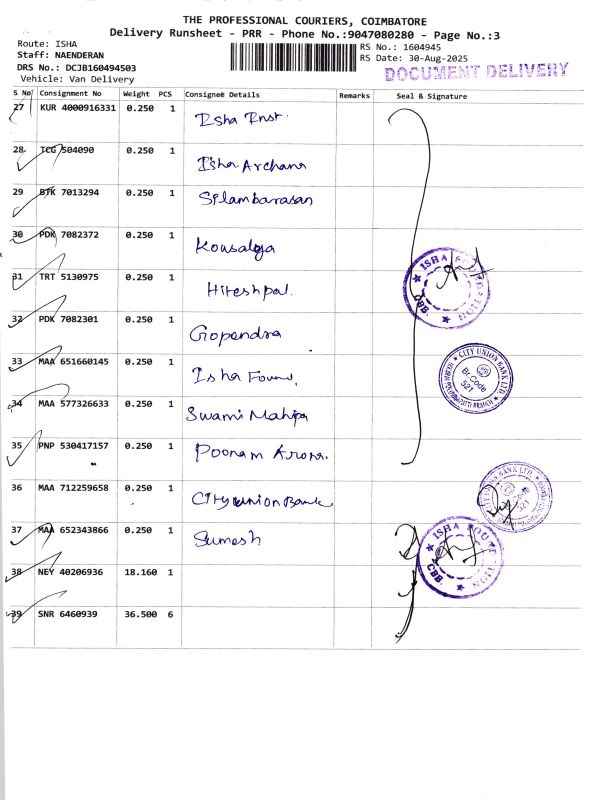 THE PROFESSIONAL COURIERS, COIMBATORE
Delivery Runsheet - PRR - Phone No.:9047080280 - Page No.:3
Route: ISHA
Staff: NAENDERAN
DRS No.: DCJB160494503
Vehicle: Van Delivery
RS No.: 1604945
RS Date: 30-Aug-2025
DOCUMENT DELIVERY
S No Consignment No Weight PCS Consignee Details Remarks Seal & Signature
27 KUR 4000916331 0.250 1 Isha Inst.
28 TCG 504090 0.250 1 Isha Archana
29 BTK 7013294 0.250 1 Silambarasan
30 PDK 7082372 0.250 1 Kousalya
31 TRT 5130975 0.250 1 Hiteshpal.
32 PDK 7082301 0.250 1 Gopendra
33 MAA 651660145 0.250 1 Isha Foun.
34 MAA 577326633 0.250 1 Swami Mahipa
35 PNP 530417157 0.250 1 Poonam Arora.
36 MAA 712259658 0.250 1 City union Bank
37 MAA 652343866 0.250 1 Sumesh
38 NEY 40206936 18.160 1
39 SNR 6460939 36.500 6
ISHA FOUNDATION
CBB.
CITY UNION BANK LTD.
Br.Code
521
CITY UNION BANK LTD.
521
ISHA FOUNDATION
CBB.